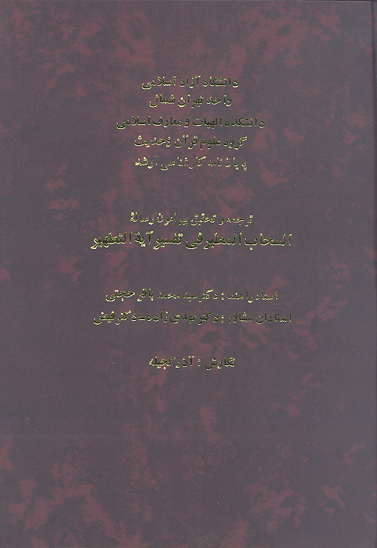 دانشگاه آزاد اسلامی
واحد تهران شمال
دانشکده الهیات و معارف اسلامی
گروه علوم قرآن و حدیث
پایان نامه کارشناسی ارشد
ترجمه و تحقیق پیرامون رساله
السحاب المطیر فی تفسیر آیة التطهیر
استاد راهنما : دکتر سید محمد باقر حجتی
استادان مشاور : دکتر مهدی زاده - دکتر فیض
نگارش : آذر